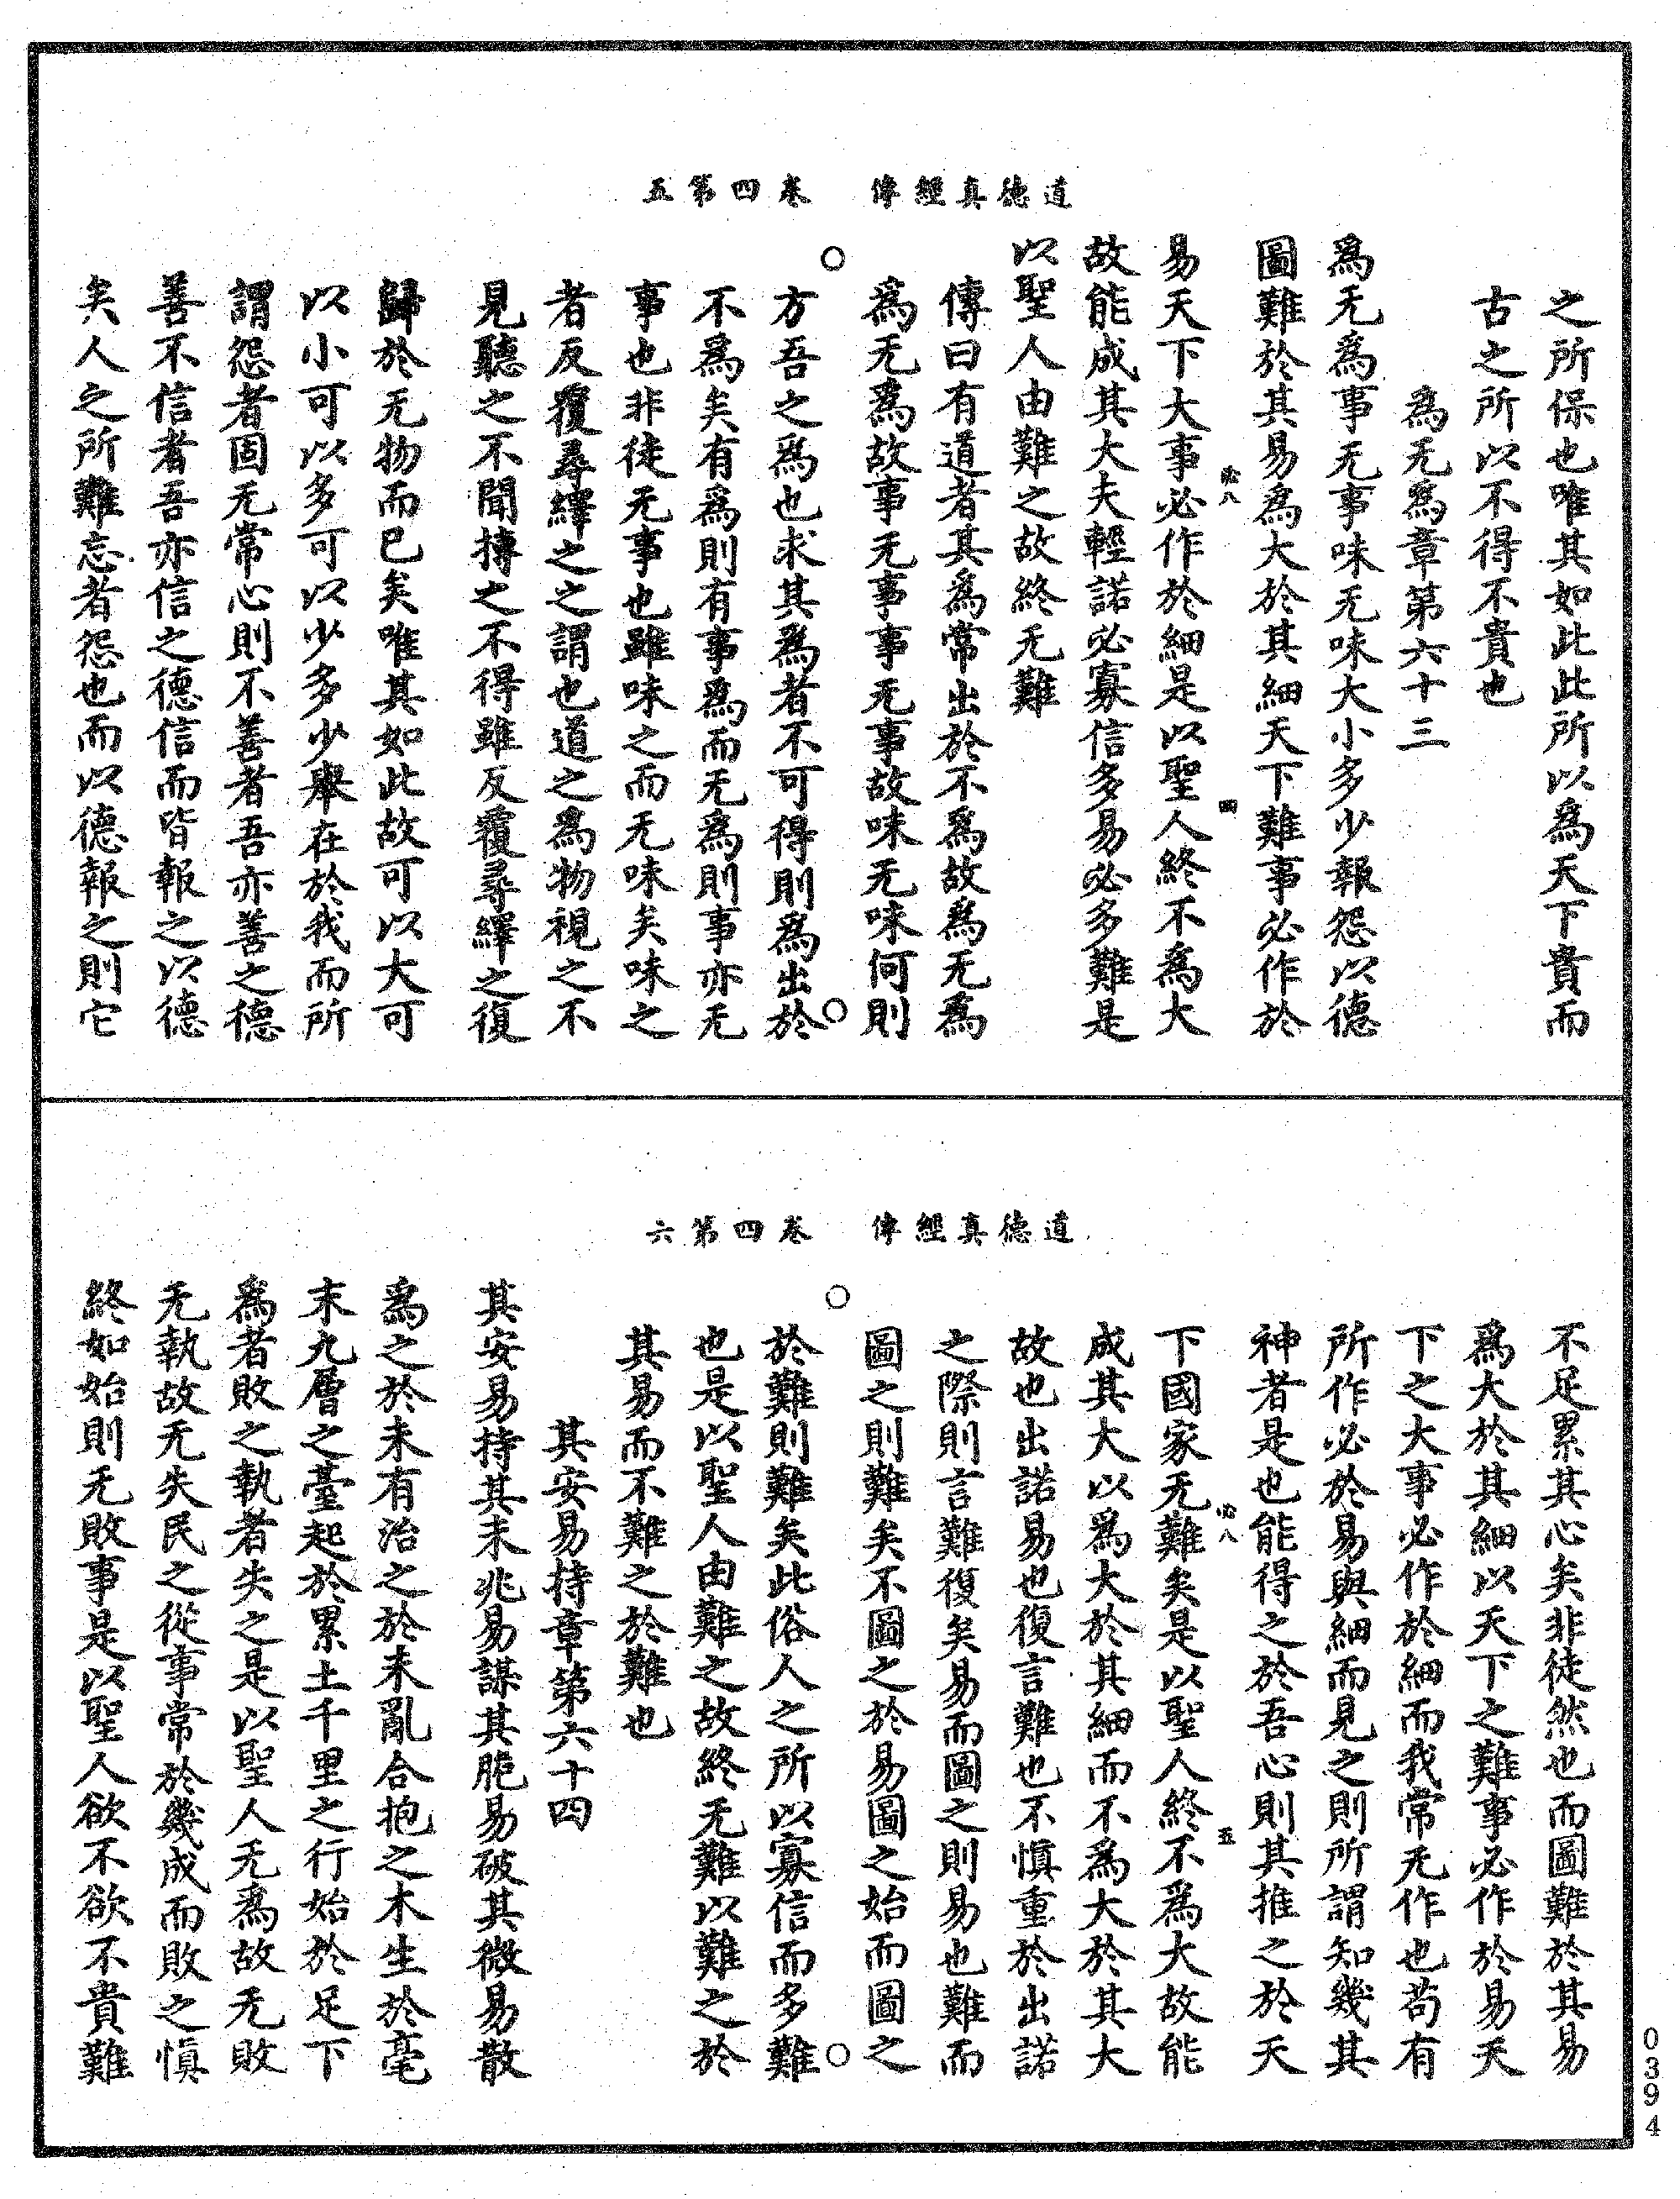 道德真經傳　卷四第五
之所保也唯其如此此所以為天下貴而
古之所以不得不貴也
為无為章第六十三
為无為事无事味无味大小多少報怨以德
圖難於其易為大於其細天下難事必作於
易天下大事必作於細是以聖人終不為大
故能成其大夫輕諾必寡信多易必多難是
以聖人由難之故終无難
傳曰有道者其為常出於不為故為无為
為无為故事无事事无事故味无味何則
方吾之為也求其為者不可得則為出於
不為矣有為則有事為而无為則事亦无
事也非徒无事也雖味之而无味矣味之
者反覆尋繹之之謂也道之為物視之不
見聽之不聞搏之不得雖反覆尋繹之復
歸於无物而已矣唯其如此故可以大可
以小可以多可以少多少舉在於我而所
謂怨者固无常心則不善者吾亦善之德
善不信者吾亦信之德信而皆報之以德
矣人之所難忘者怨也而以德報之則它
道德真經傳　卷四第六
不足累其心矣非徒然也而圖難於其易
為大於其細以天下之難事必作於易天
下之大事必作於細而我常无作也苟有
所作必於易與細而見之則所謂知幾其
神者是也能得之於吾心則其推之於天
下國家无難矣是以聖人終不為大故能
成其大以為大於其細而不為大於其大
故也出諾易也復言難也不慎重於出諾
之際則言難復矣易而圖之則易也難而
圖之則難矣不圖之於易圖之始而圖之
於難則難矣此俗人之所以寡信而多難
也是以聖人由難之故終无難以難之於
其易而不難之於難也
其安易持章第六十四
其安易持其未兆易謀其脆易破其微易散
為之於未有治之於未亂合抱之木生於毫
末九層之臺起於累土千里之行始於足下
為者敗之執者失之是以聖人无為故无敗
无執故无失民之從事常於幾成而敗之慎
終如始則无敗事是以聖人欲不欲不貴難
0394